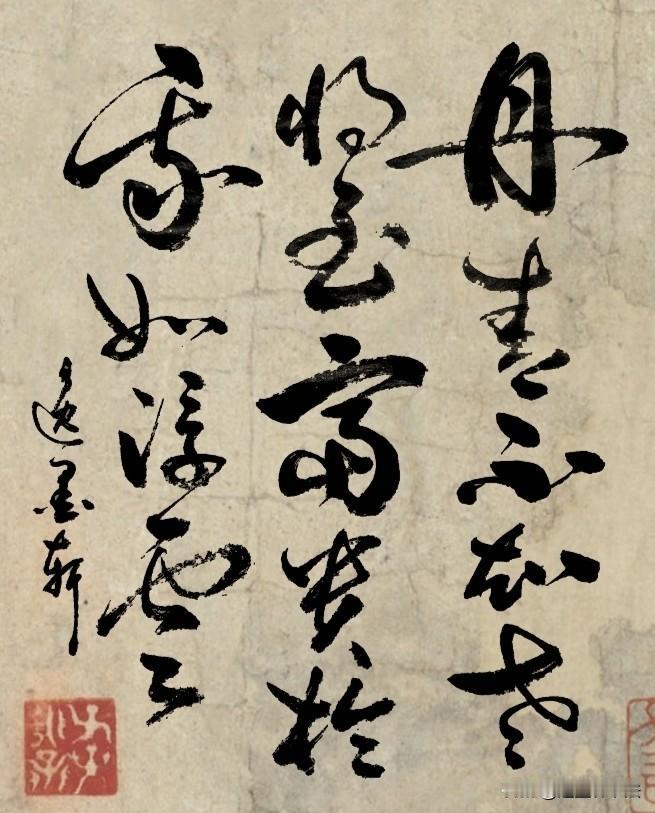 丹青不知老
将至富贵於
我如浮雲
逸墨轩